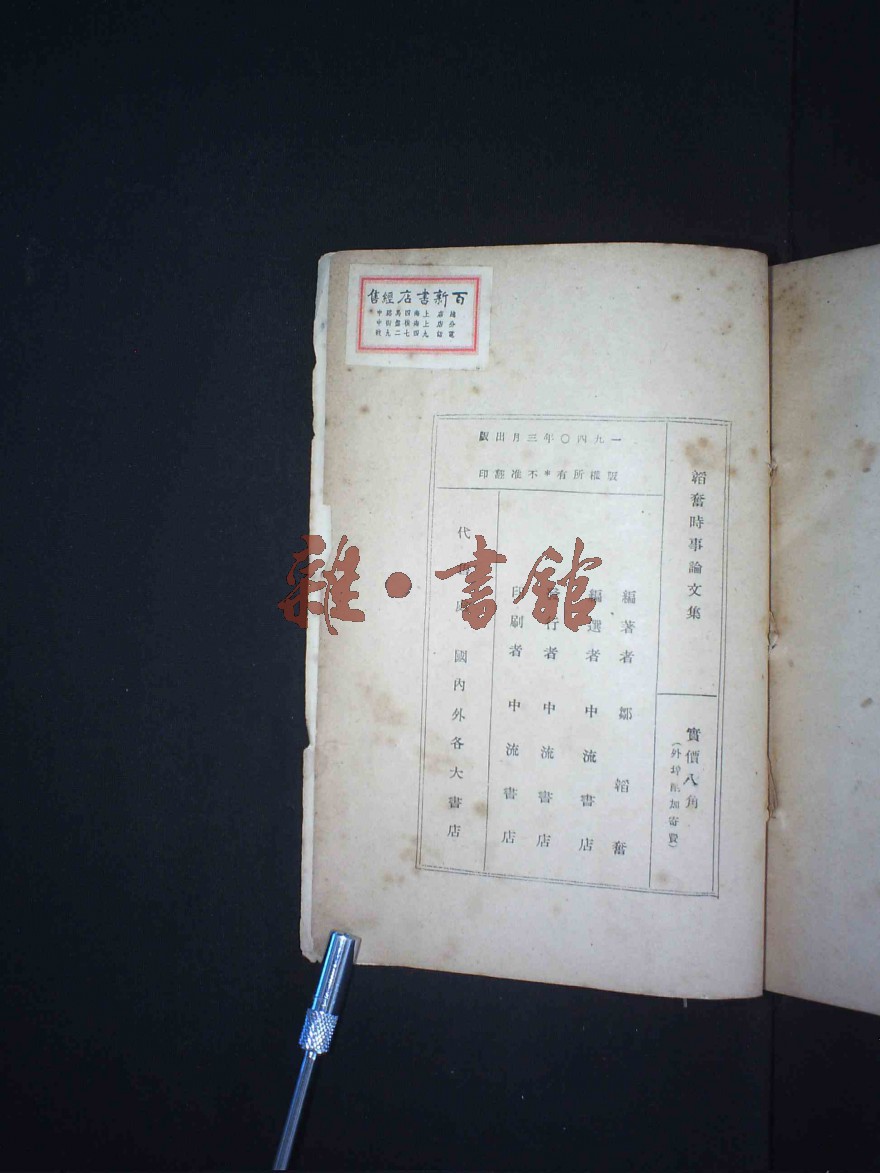 百新書店經售
總店上海四馬路中
分店上海棋盤街中
電話九四七二九號
韜奮時事論文集
實價八角
(外埠酌加寄費)
一九四〇年三月出版
版權所有＊不准翻印
編著者 鄒韜奮
編選者 中流書店
發行者 中流書店
印刷者 中流書店
代 處 國內外各大書店
雜·書館